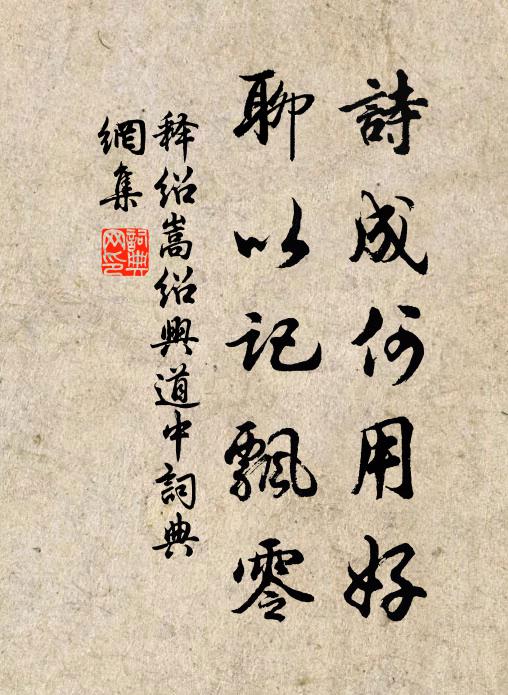 詩成何用好
聊以記飄零
释紹嵩紹興道中詞典
網集
詞典
网印